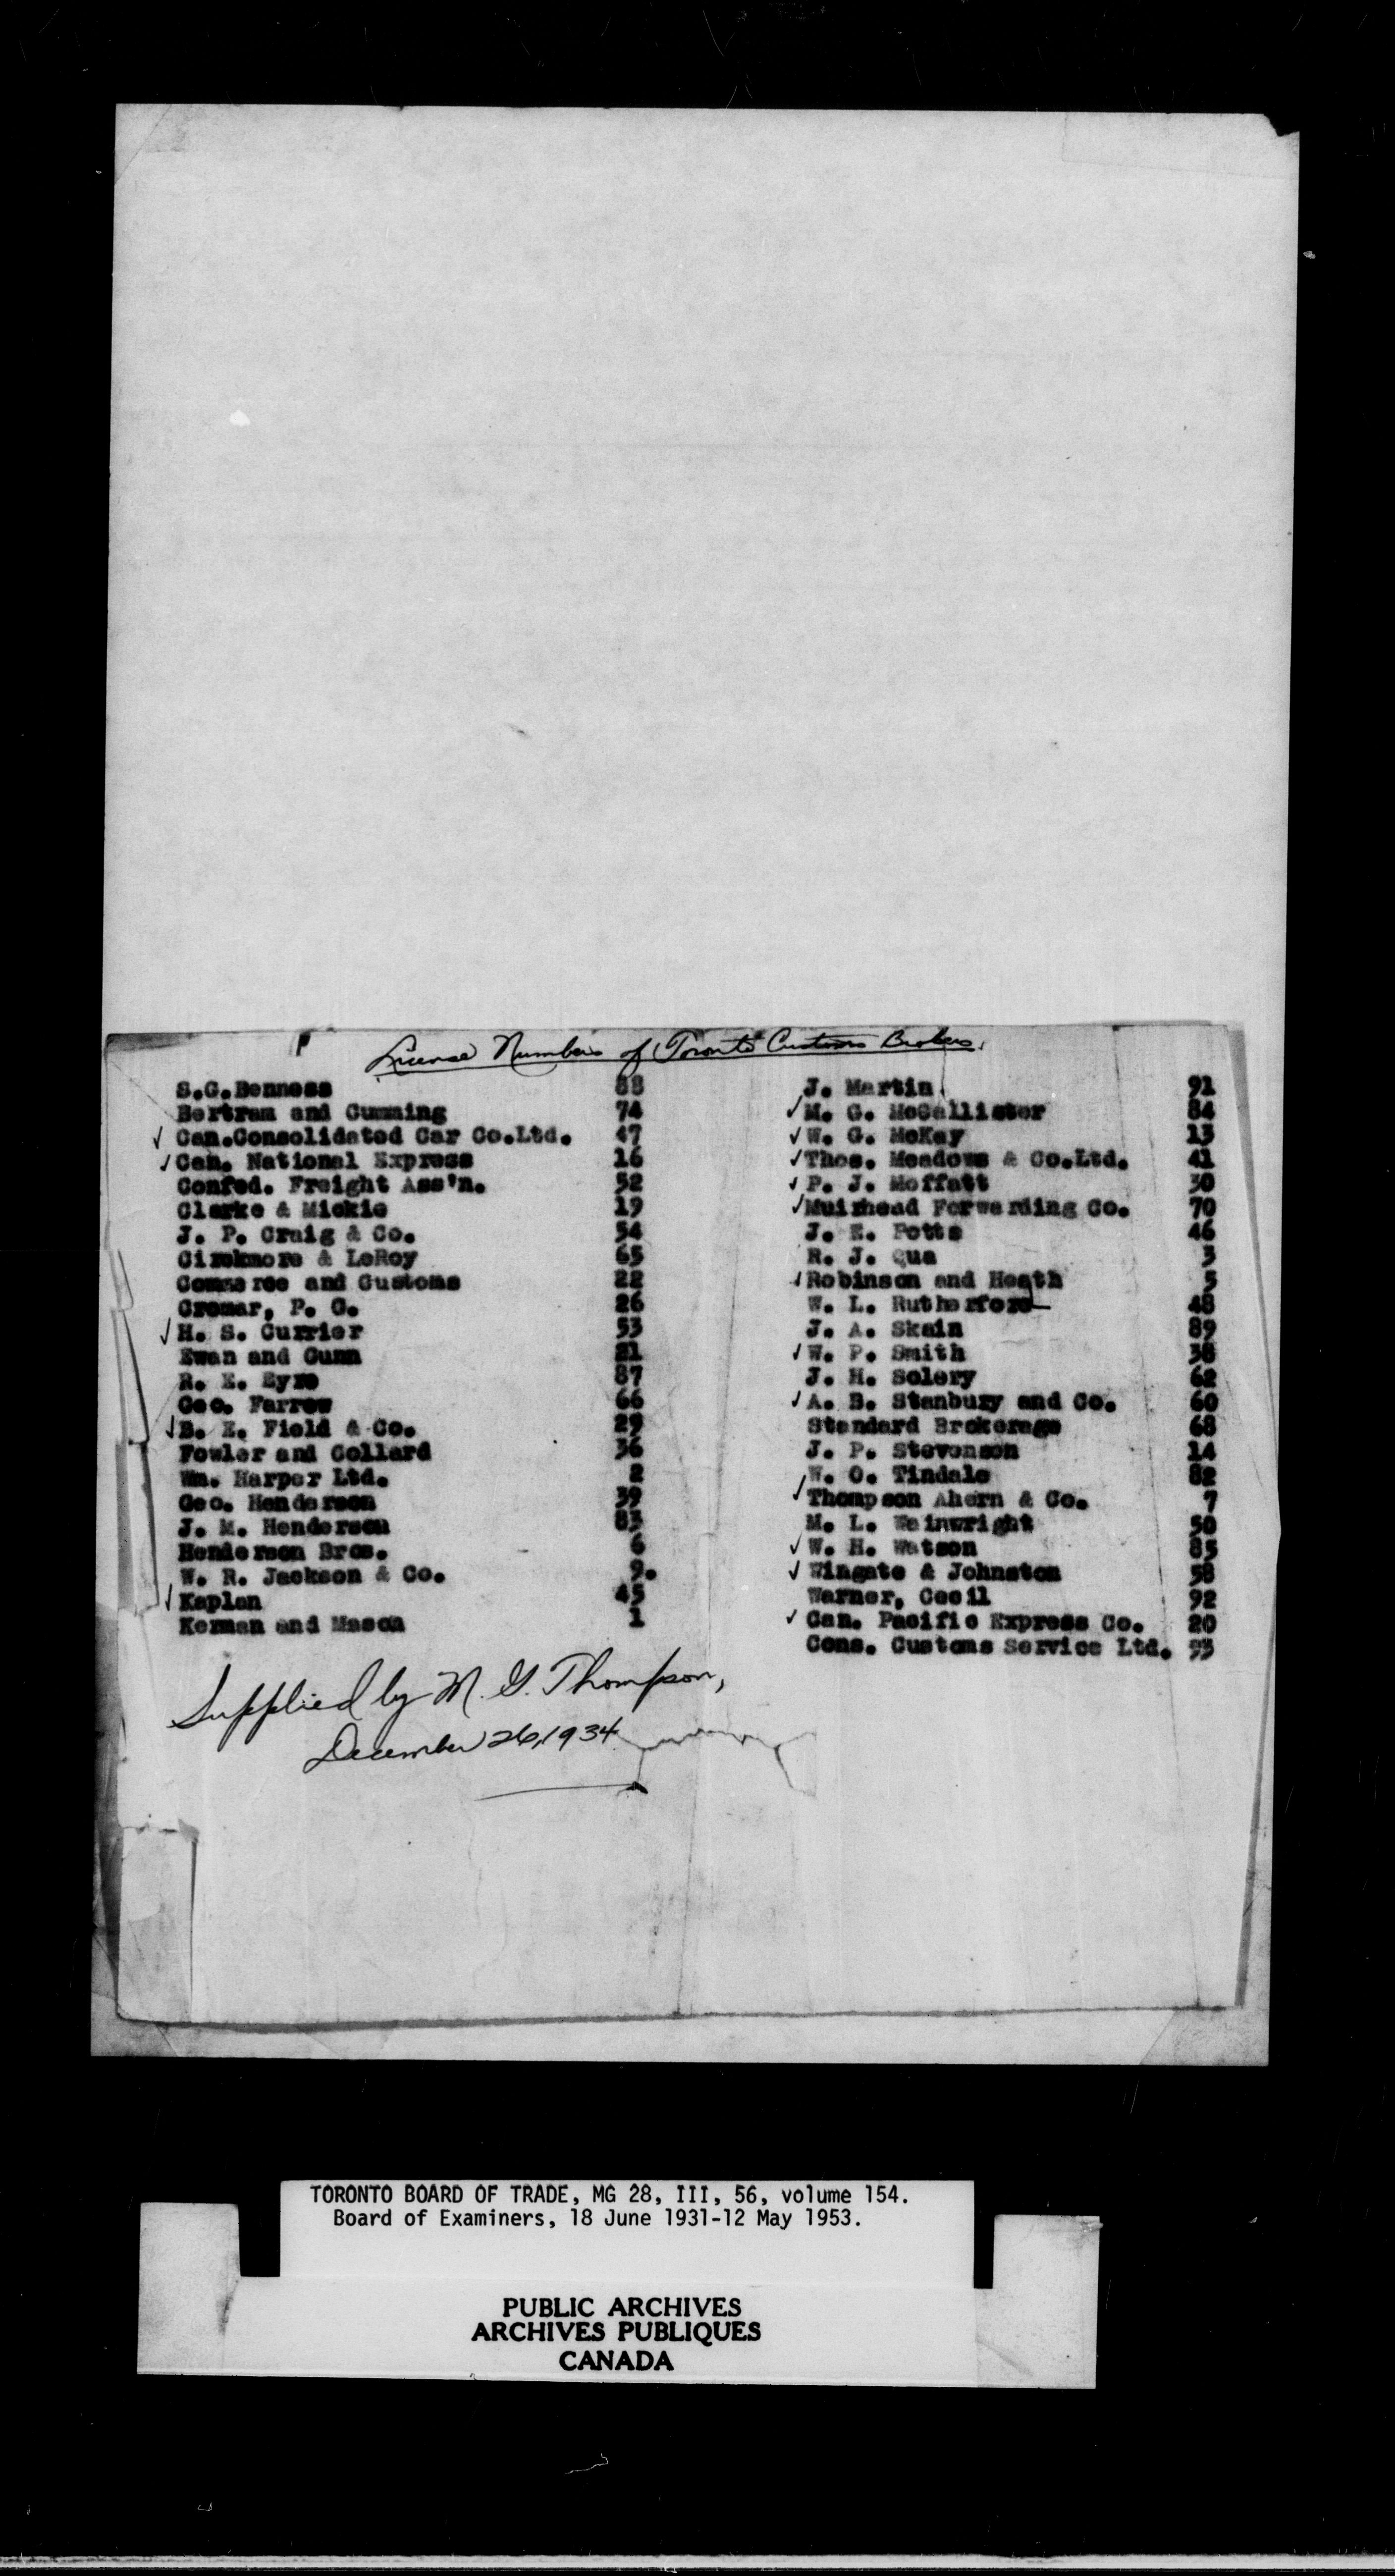 License Numbers of Toronto Customs Brokers.
S.G.Benness 88
Bertram and Cumming 74
✓ Can.Consolidated Car Co.Ltd. 47
✓ Can. National Express 16
Confed. Freight Ass'n. 52
Clarke & Mickie 19
J. P. Craig & Co. 54
& LeRoy 65
Commerce and Customs 22
Cromar, P. G. 26
✓ H. S. Currier 53
Ewan and Gunn 21
R. E. Eyre 87
Geo. Farrow 66
✓ B. E. Field & Co. 29
Fowler and Collard 36
Wm. Harper Ltd. 2
Geo. Henderson 39
J. M. Henderson 83
Henderson Bros. 6
W. R. Jackson & Co. 9.
✓ Kaplan 45
Kerman and Mason 1
J. Martin 91
✓ M. G. McCallister 84
✓ W. G. McKay 13
✓ Thos. Meadows & Co.Ltd. 41
✓ P. J. Moffatt 30
✓ Muirhead Forwarding Co. 70
J. E. Potts 46
R. J. Qua 3
✓ Robinson and Heath 5
W. L. Rutherford 48
J. A. Skain 89
✓ W. P. Smith 38
J. H. Solery 62
✓ A. B. Stanbury and Co. 60
Standard Brokerage 68
J. P. Stevenson 14
W. O. Tindale 82
✓ Thompson Ahern & Co. 7
M. L. Wainwright 50
✓ W. H. Watson 85
✓ Wingate & Johnston 58
Warner, Cecil 92
✓ Can. Pacific Express Co. 20
Cons. Customs Service Ltd. 93
Supplied by M. G. Thompson,
December 26, 1934
TORONTO BOARD OF TRADE, MG 28, III, 56, volume 154.
Board of Examiners, 18 June 1931-12 May 1953.
PUBLIC ARCHIVES
ARCHIVES PUBLIQUES
CANADA